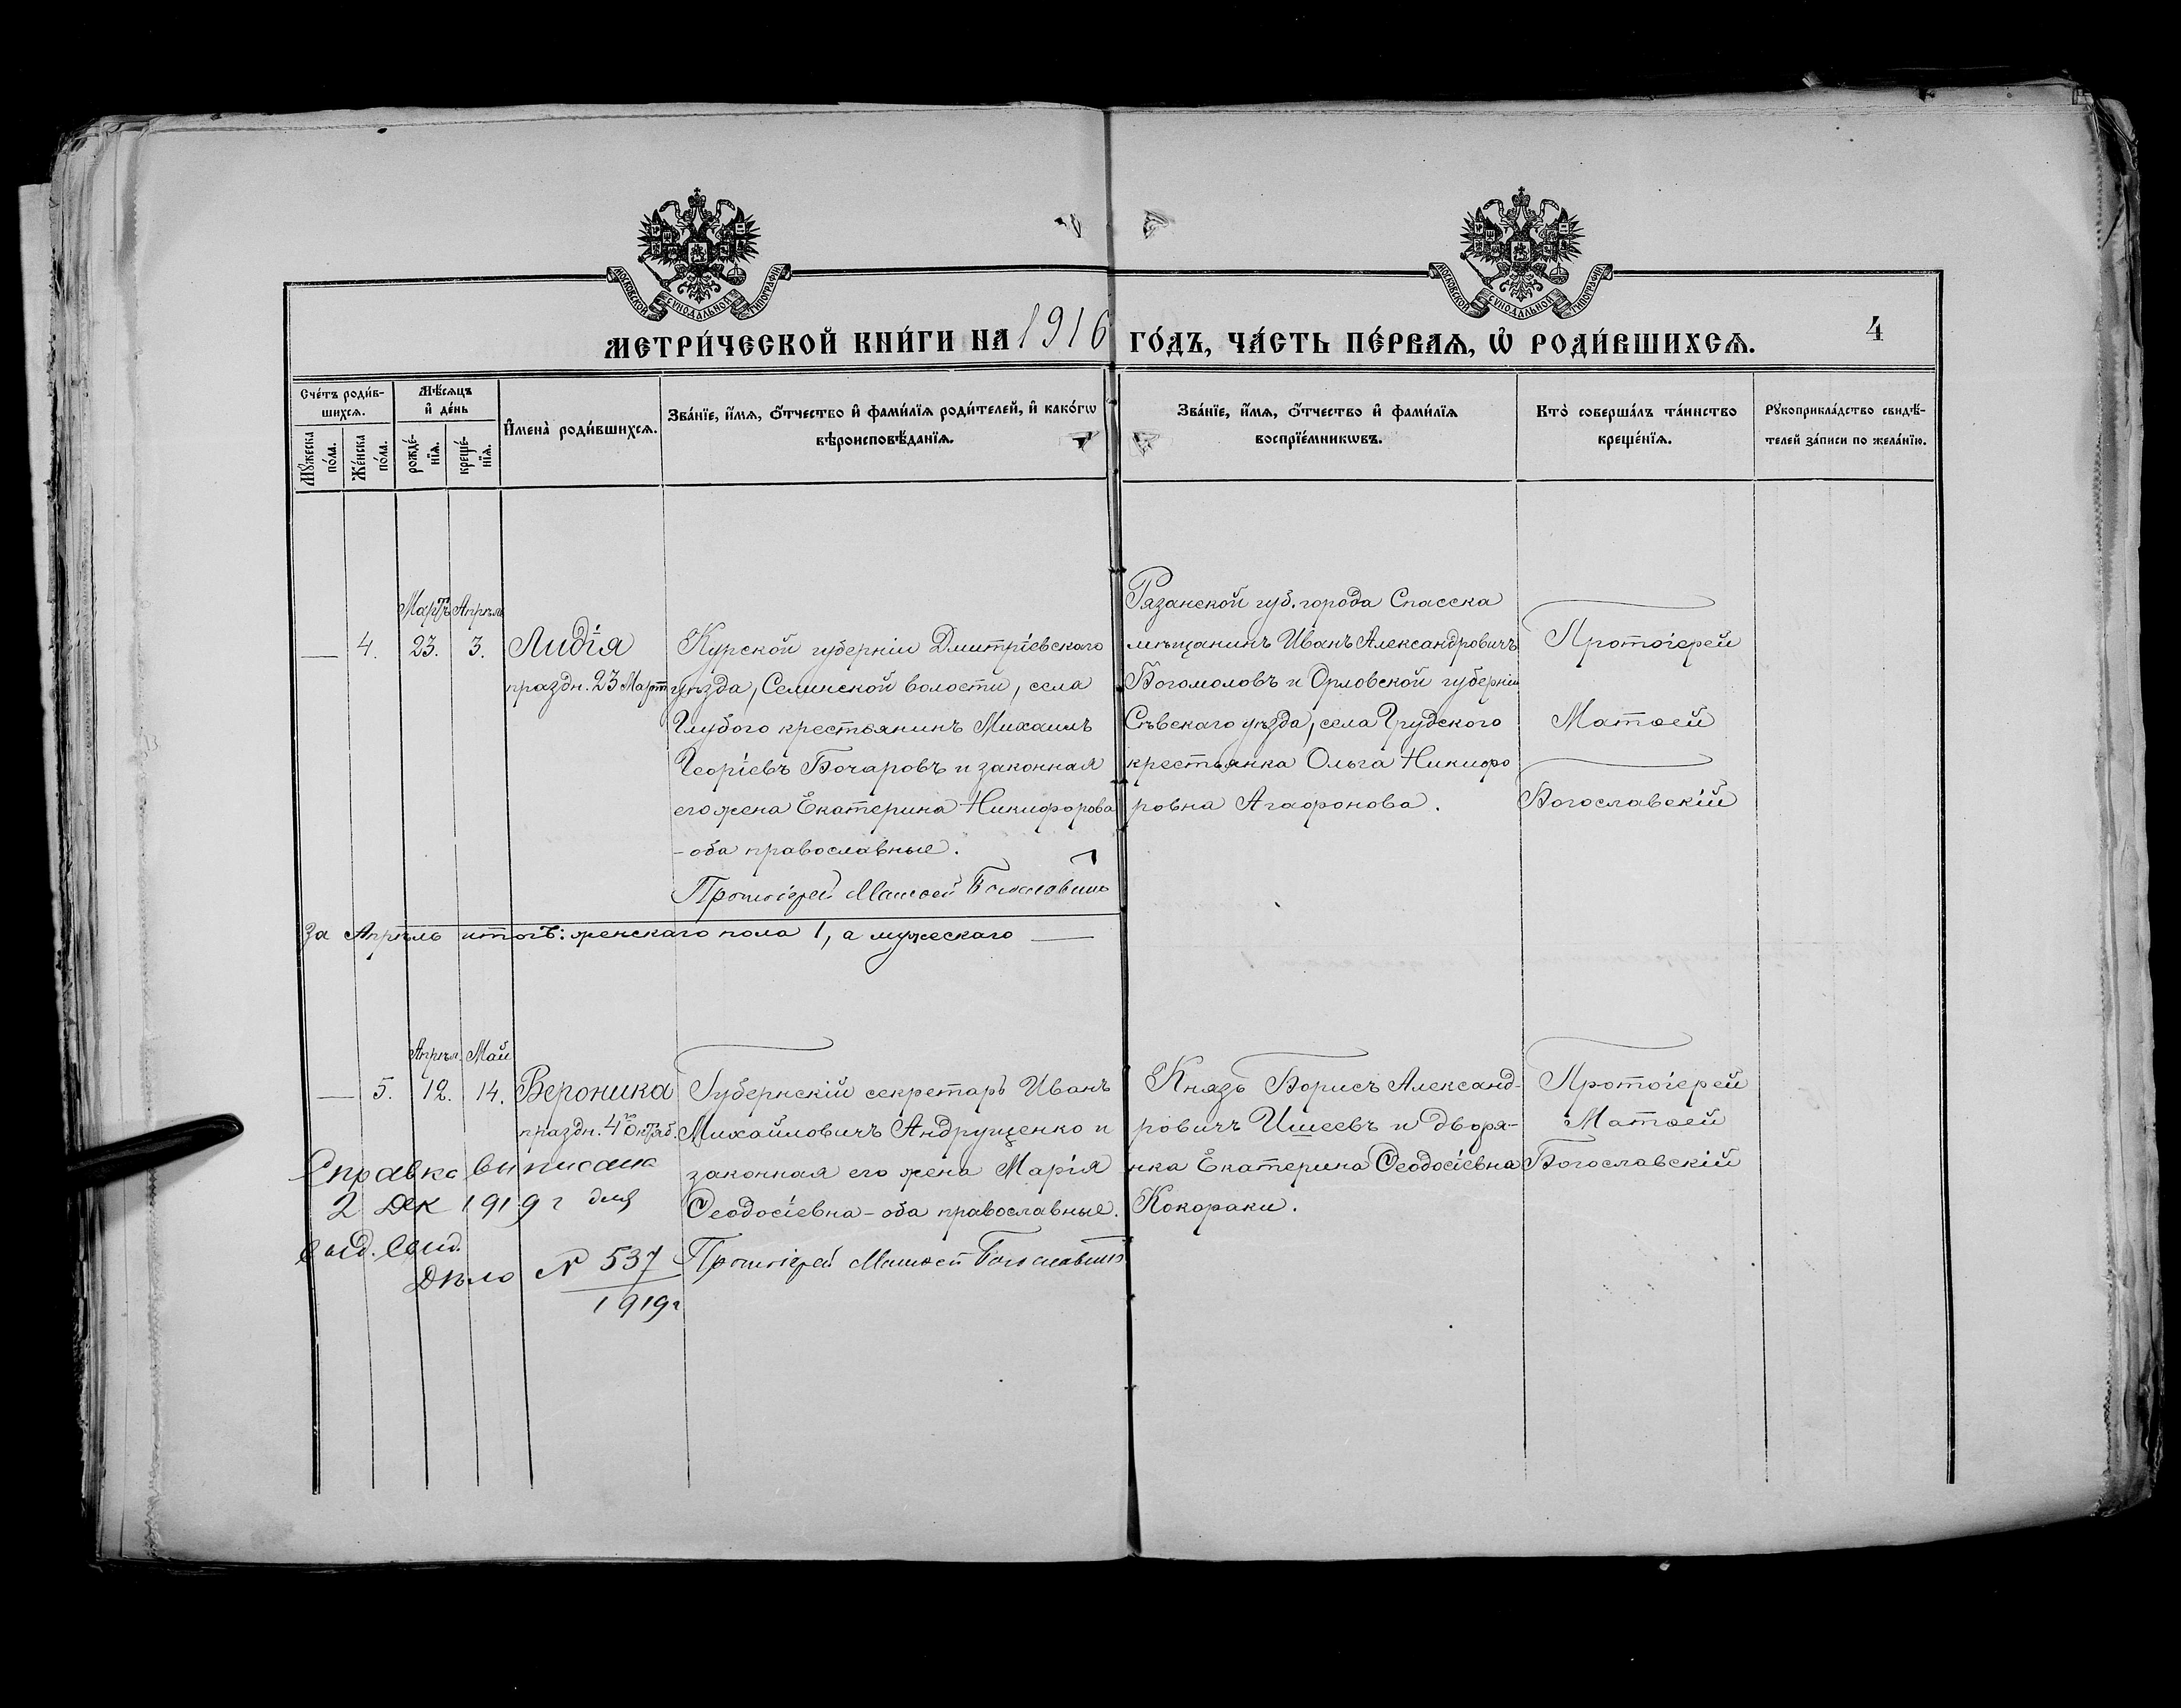 МОСКОВСКОЙ СѴНОДАЛЬНОЙ ТИПОГРАФІИ
МОСКОВСКОЙ СѴНОДАЛЬНОЙ ТИПОГРАФІИ
МЕТРИ́ЧЕСКОЙ КНИ́ГИ НА 1916 ГО́ДЪ, ЧА́СТЬ ПЕ́РВАѦ, Ѡ҆ РОДИ́ВШИХСѦ.
4
Сче́тъ роди́в-
шихсѧ.
Мꙋ́жеска
по́ла.
Же́нска
по́ла.
Мѣ́сѧцъ
и҆ де́нь
рожде́-
нїѧ.
креще́-
нїѧ.
И҆мена̀ роди́вшихсѧ.
Зва́нїе, и҆́мѧ, ѻ҆́тчество и҆ фами́лїѧ роди́телей, и҆ како́гѡ
вѣроисповѣ́данїѧ.
Зва́нїе, и҆́мѧ, ѻ҆́тчество и҆ фами́лїѧ
воспрїе́мникѡвъ.
Кто̀ соверша́лъ та́инство
креще́нїѧ.
Рꙋкоприкла́дство свидѣ́-
телей за́писи по жела́нїю.
Мартъ Апрѣль
— 4. 23. 3. Лидія
праздн. 23 Март
Курской губерніи Дмитріевскаго
уѣзда, Селинской волости, села
Глубого крестьянинъ Михаилъ
Георгіевъ Бочаровъ и законная
его жена Екатерина Никифорова
- оба православные.
Протоіерей Матѳей Богословскій
Рязанской губ. города Спасска
мѣщанинъ Иванъ Александровичъ
Богомоловъ и Орловской губерніи
Сѣвскаго уѣзда, села
крестьянка Ольга Никифо
ровна Агафонова.
Протоіерей
Матѳей
Богославскій
За Апрѣль итогъ: женскаго пола 1, а мужескаго —
Апрѣл. Май
— 5. 12. 14. Вероника
праздн. 4го Октяб.
Губернскій секретарь Иванъ
Михайловичъ Андрущенко и
законная его жена Марія
Ѳеодосіевна - оба православные.
Протоіерей Матѳей Богославскій
Князь Борисъ Александ-
ровичъ Ишеевъ и дворя-
нка Екатерина Ѳеодосіевна
Кокораки.
Протоіерей
Матѳей
Богославскій
Справка выписана
2 Дек 1919 г для
выд. Свид.
Дѣло № 537
1919 г